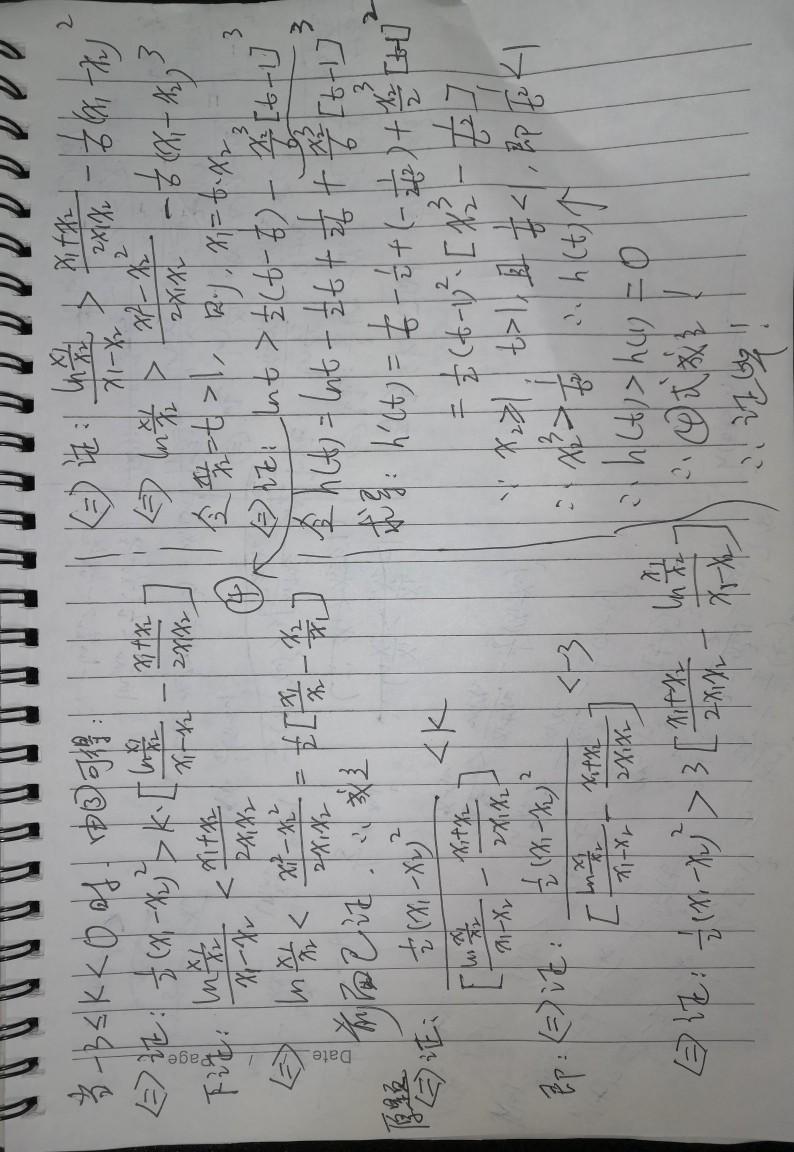 当 -3≤K<0 时. 由③可得:
⇔证: 1/2(x₁-x₂)² > K·[ln(x₁/x₂)/(x₁-x₂) - (x₁+x₂)/(2x₁x₂)]
下证: ln(x₁/x₂)/(x₁-x₂) < (x₁+x₂)/(2x₁x₂)
⇔ ln(x₁/x₂) < (x₁²-x₂²)/(2x₁x₂) = 1/2[x₁/x₂ - x₂/x₁]
前面已证. ∴成立
原题
⇔证: 1/2(x₁-x₂)²/[ln(x₁/x₂)/(x₁-x₂) - (x₁+x₂)/(2x₁x₂)] < K
即: ⇔证: 1/2(x₁-x₂)²/[ln(x₁/x₂)/(x₁-x₂) - (x₁+x₂)/(2x₁x₂)] < -3
⇔证: 1/2(x₁-x₂)² > 3[(x₁+x₂)/(2x₁x₂) - ln(x₁/x₂)/(x₁-x₂)]
⇔证: ln(x₁/x₂)/(x₁-x₂) > (x₁+x₂)/(2x₁x₂) - 1/6(x₁-x₂)²
⇔ ln(x₁/x₂) > (x₁²-x₂²)/(2x₁x₂) - 1/6(x₁-x₂)³
令 x₁/x₂=t>1, 则, x₁=t·x₂
⇔证: lnt > 1/2(t-1/t) - x₂³/6[t-1]³
④
令h(t)=lnt-1/2t+1/2t+x₂³/6[t-1]³
求导: h'(t)=1/t-1/2+(-1/2t²)+x₂³/2[t-1]²
=1/2(t-1)²·[x₂³-1/t²]
∵ x₂≥1 t>1, 且1/t<1, 即1/t²<1
∴ x₂³>1/t² ∴ h(t)↑
∴ h(t)>h(1)=0
∴ ④式成立!
∴ 证毕!
Date / / Page